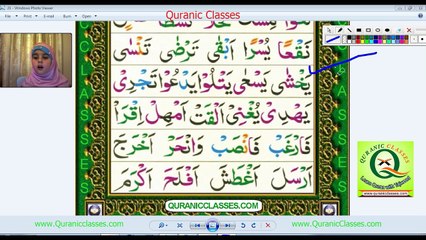 Quranic Classes
Windows Photo Viewer
نَقْعًا يُسْرًا اَبْقٰى تَرْضٰى تَنْسٰى
يَخْشٰى يَسْعٰى يَتْلُوْا يَدْعُوْا تَجْرِىْ
يَهْدِىْ يُغْنِىْ اَلْقَتْ اَمْهِلْ اِقْرَاْ
فَارْغَبْ فَانْصَبْ وَانْحَرْ اَخْرَجَ
اَرْسَلَ اَغْطَشَ اَفْلَحَ اَكْرَمَ
CLASSES
CLASSES
QURANIC CLASSES
QURANICCLASSES.COM
www.QuranicClasses.com
www.QuranicClasses.com